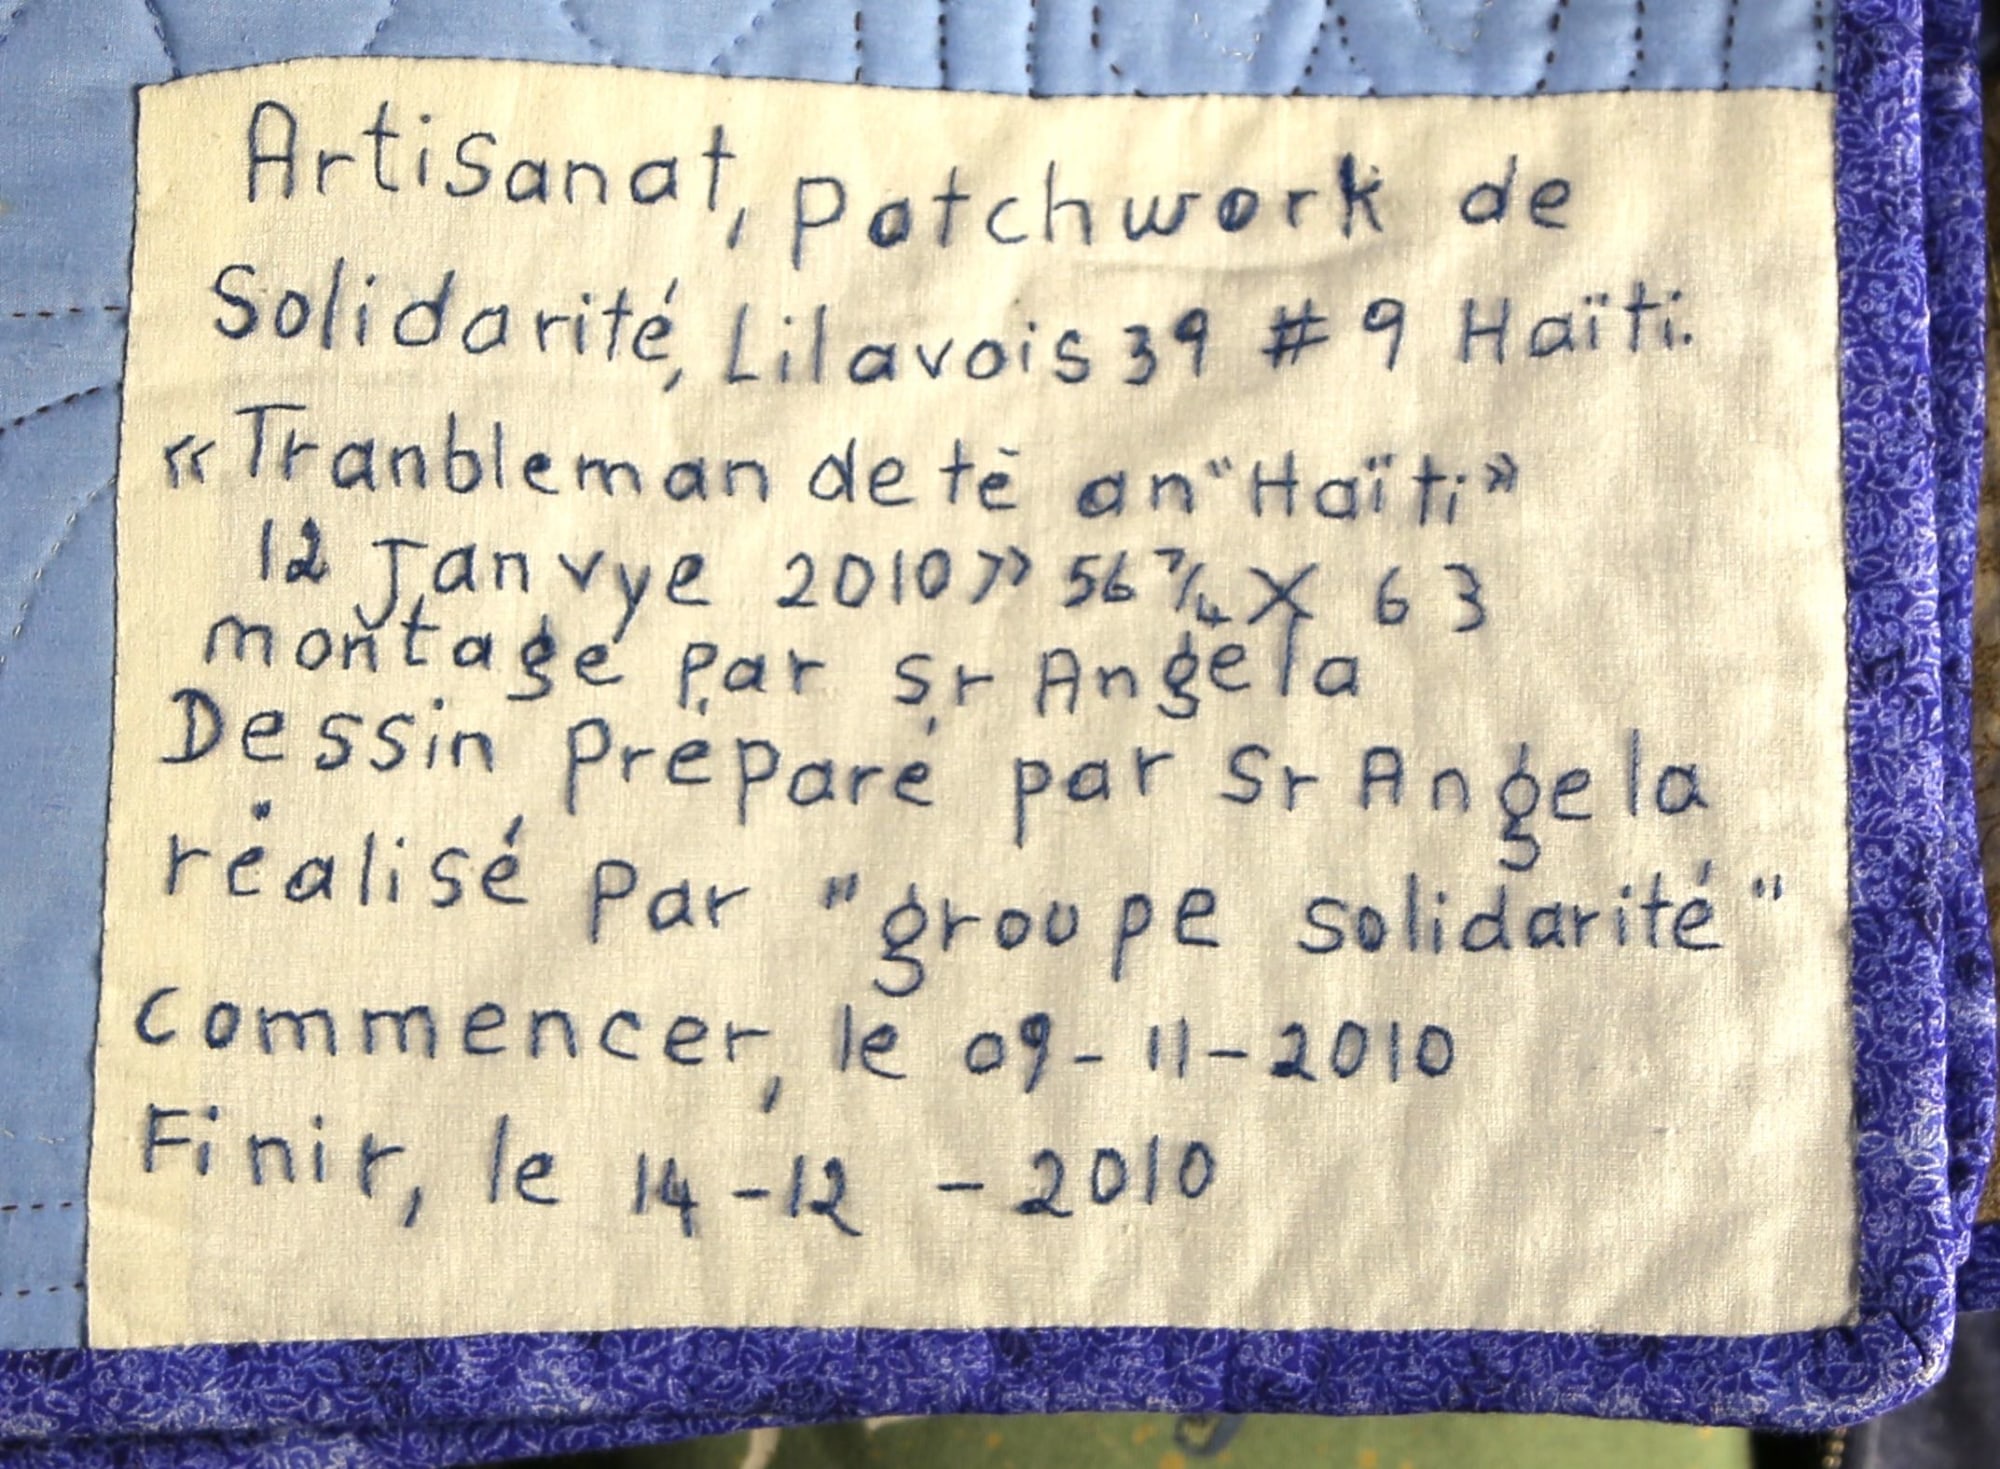 Artisanat, patchwork de
Solidarité, Lilavois 39 # 9 Haïti.
« Tranbleman de tè an "Haïti »
12 Janvye 2010 » 56 7/4 X 63
montage par Sr Angela
Dessin préparé par Sr Angela
réalisé par "groupe solidarité"
Commencer, le 09-11-2010
Finir, le 14-12-2010